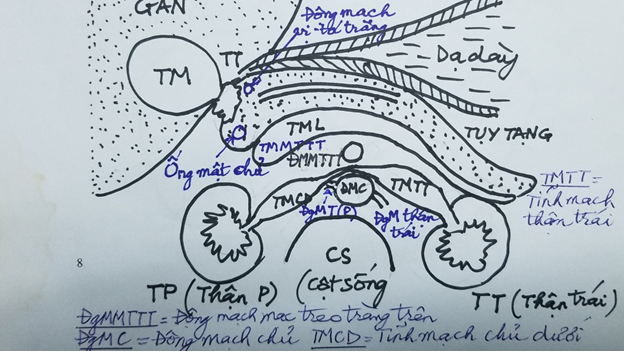 GAN
Động mạch
vị-tá tràng
TT
TM
Dạ dày
TML
TMMTTT
TUỴ TẠNG
ĐMMTTT
Ống mật chủ
TMTT =
Tĩnh mạch
thận trái
TMCD
ĐMC
TMTT
ĐgMT(P)
ĐgM thận
trái
CS
(Cột sống)
8
TP (Thận P)
TT (Thận trái)
ĐgMMTTT = Động mạch mạc treo tràng trên
ĐgMC = Động mạch chủ TMCD = Tĩnh mạch chủ dưới